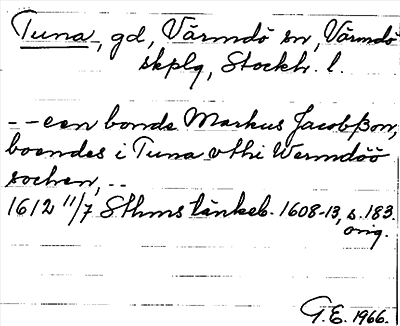 Tuna, gd, Värmdö sn, Värmdö
skplg, Stockh. l.
--een bonde Markus Jacobßon,
boendes i Tuna vthi Wermdöö
sochen, --
1612 11/7 Sthms tänkeb. 1608-13, s. 183.
orig.
G.E. 1966.